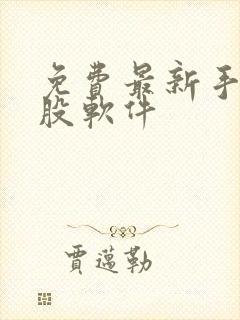 免費最新手
股軟件
賈邁勒